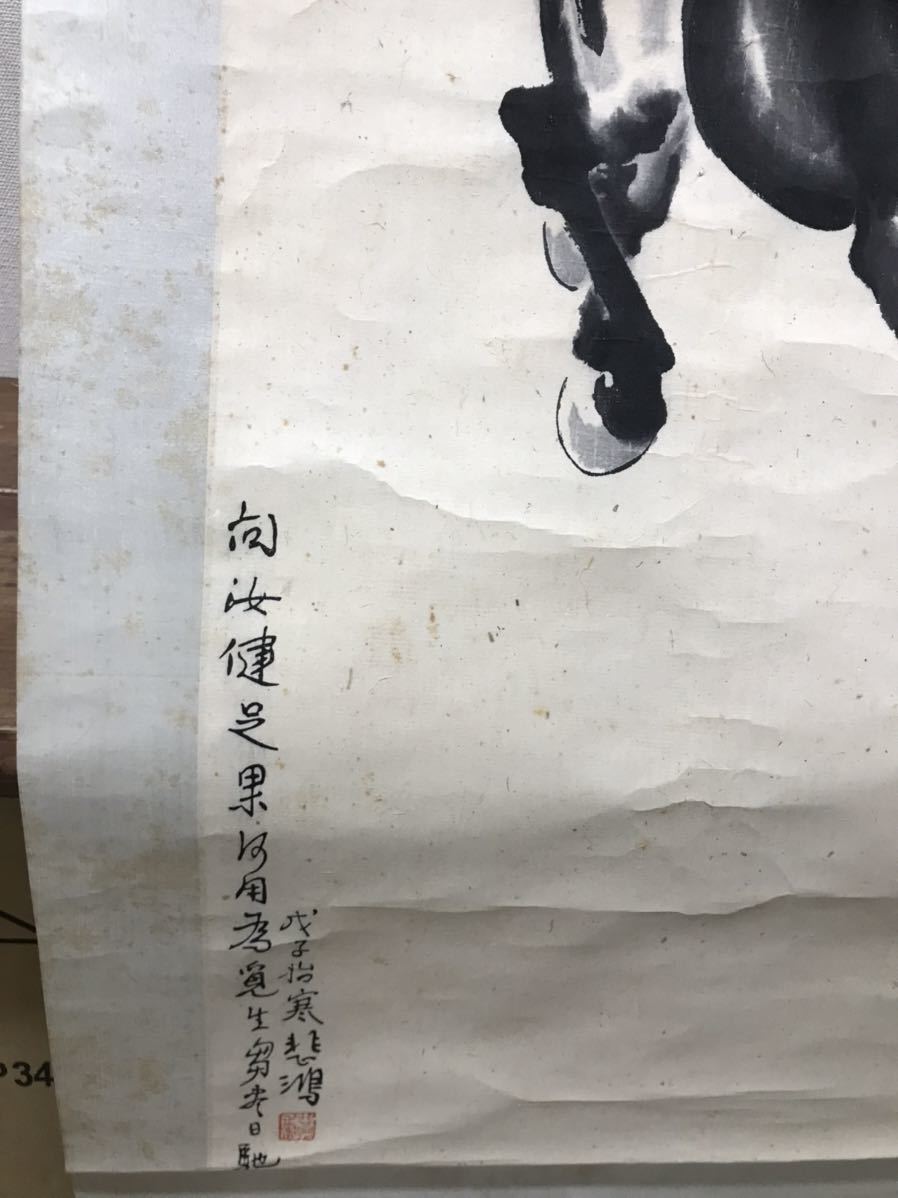 向汝健足果何用為覓生芻盡日馳
戊子始寒悲鴻
P 34